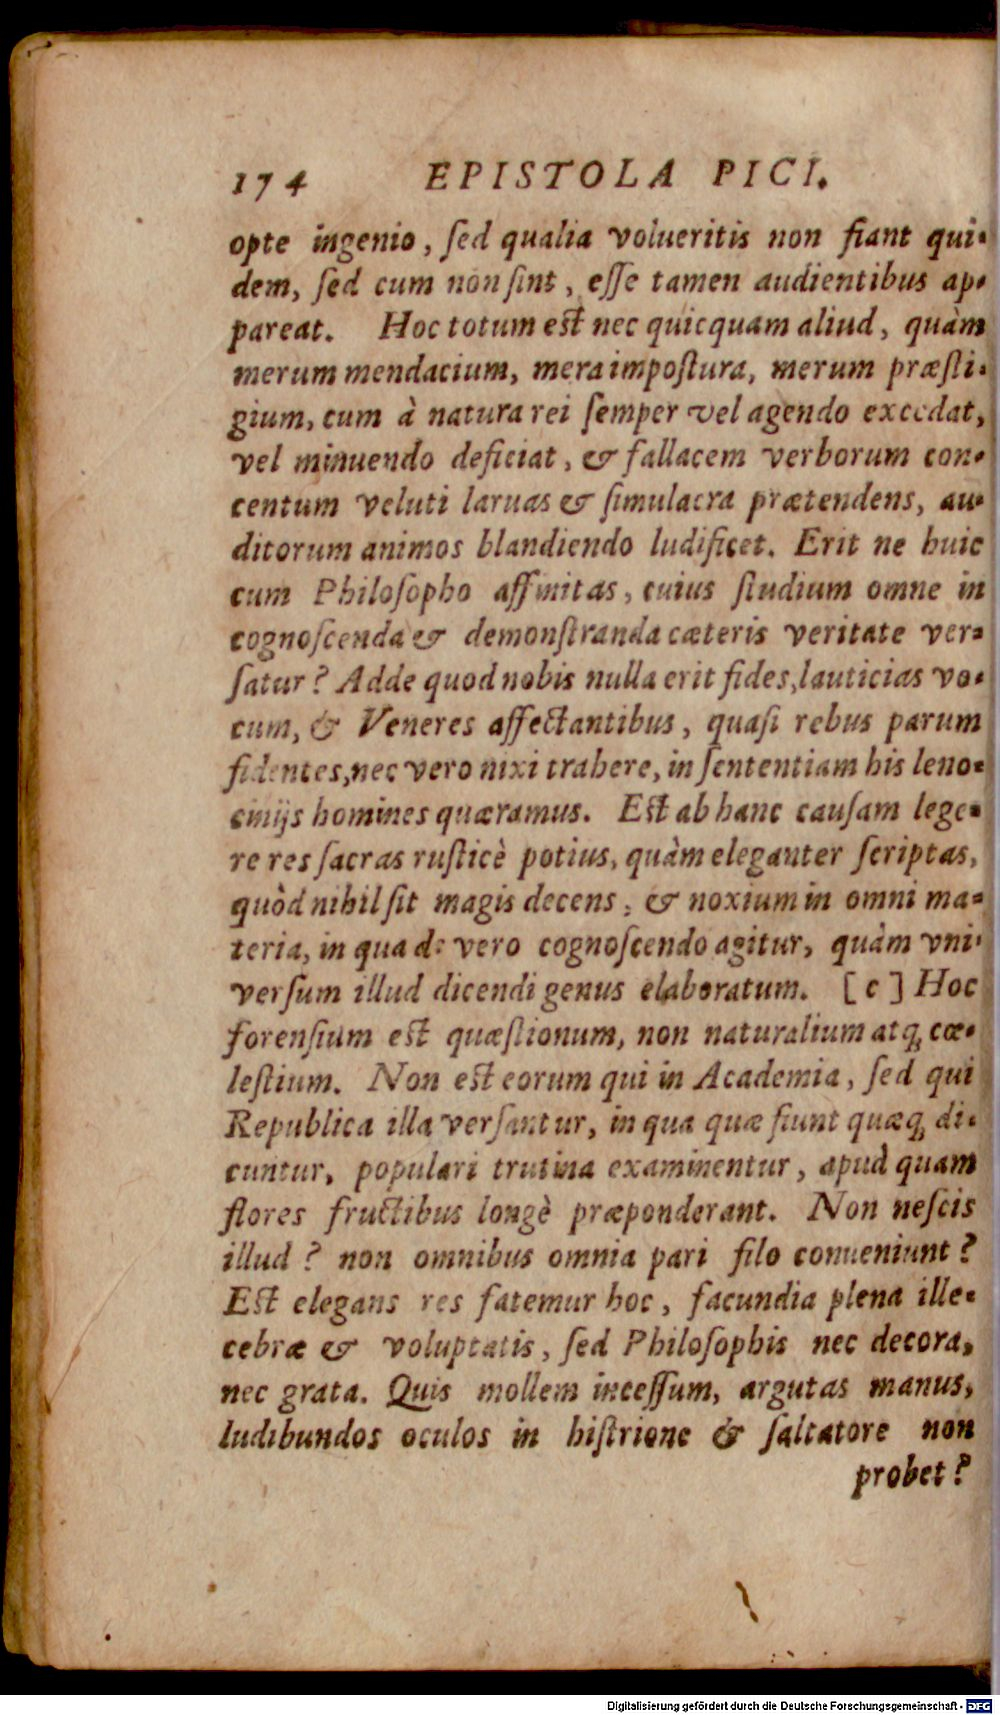 174 EPISTOLA PICI.
opte ingenio, ſed qualia volueritis non fiant qui-
dem, ſed cum non ſint, eſſe tamen audientibus ap-
pareat. Hoc totum est nec quicquam aliud, quàm
merum mendacium, mera impoſtura, merum præſti-
gium, cum à natura rei ſemper vel agendo excedat,
vel minuendo deficiat, & fallacem verborum con-
centum veluti laruas & ſimulacra prætendens, au-
ditorum animos blandiendo ludificet. Erit ne huic
cum Philoſopho affinitas, cuius ſtudium omne in
cognoſcenda & demonſtranda cæteris veritate ver-
ſatur? Adde quod nobis nulla erit fides, lauticias vo-
cum, & Veneres affectantibus, quaſi rebus parum
fidentes, nec vero nixi trahere, in ſententiam his leno-
cinijs homines quæramus. Est ab hanc cauſam lege-
re res ſacras ruſticè potius, quàm eleganter ſcriptas,
quòd nihil ſit magis decens, & noxium in omni ma-
teria, in qua de vero cognoſcendo agitur, quàm vni-
verſum illud dicendi genus elaboratum. [c] Hoc
forenſium est quæſtionum, non naturalium atq; cœ-
leſtium. Non est eorum qui in Academia, ſed qui
Republica illa verſantur, in qua quæ fiunt quæq; di-
cuntur, populari trutina examinentur, apud quam
flores fructibus longè præponderant. Non neſcis
illud? non omnibus omnia pari filo conueniunt?
Est elegans res fatemur hoc, facundia plena ille-
cebræ & voluptatis, ſed Philoſophis nec decora,
nec grata. Quis mollem inceſſum, argutas manus,
ludibundos oculos in hiſtrione & ſaltatore non
probet?
Digitalisierung gefördert durch die Deutsche Forschungsgemeinschaft - DFG